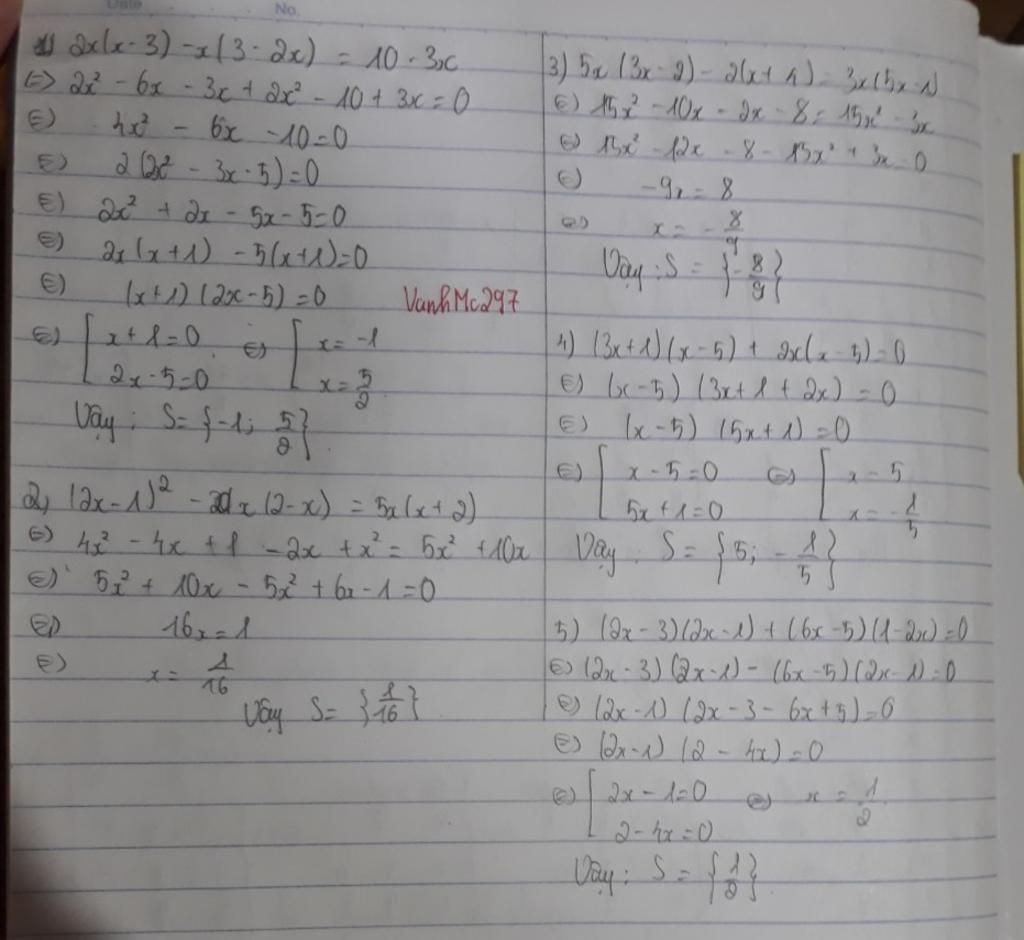 Date No.
1) 2x(x-3) - x(3-2x) = 10 - 3x
⇔ 2x² - 6x - 3x + 2x² - 10 + 3x = 0
⇔ 4x² - 6x - 10 = 0
⇔ 2(2x² - 3x - 5) = 0
⇔ 2x² + 2x - 5x - 5 = 0
⇔ 2x(x+1) - 5(x+1) = 0
⇔ (x+1)(2x-5) = 0
VanhMc297
⇔ [ x+1=0 ⇔ [ x = -1
2x-5=0 x = 5/2
Vậy: S = {-1; 5/2}
2) (2x-1)² - x(2-x) = 5x(x+2)
⇔ 4x² - 4x + 1 - 2x + x² = 5x² + 10x
⇔ 5x² + 10x - 5x² + 6x - 1 = 0
⇔ 16x = 1
⇔ x = 1/16
Vậy S = {1/16}
3) 5x(3x-2) - 2(x+4) = 3x(5x-1)
⇔ 15x² - 10x - 2x - 8 = 15x² - 3x
⇔ 15x² - 12x - 8 - 15x² + 3x = 0
⇔ -9x = 8
⇔ x = -8/9
Vậy: S = {-8/9}
4) (3x+1)(x-5) + 2x(x-5) = 0
⇔ (x-5)(3x+1+2x) = 0
⇔ (x-5)(5x+1) = 0
⇔ [ x-5=0 ⇔ [ x = 5
5x+1=0 x = -1/5
Vậy: S = {5; -1/5}
5) (2x-3)(2x-1) + (6x-5)(1-2x) = 0
⇔ (2x-3)(2x-1) - (6x-5)(2x-1) = 0
⇔ (2x-1)(2x-3-6x+5) = 0
⇔ (2x-1)(2-4x) = 0
⇔ [ 2x-1=0 ⇔ x = 1/2
2-4x=0
Vậy: S = {1/2}